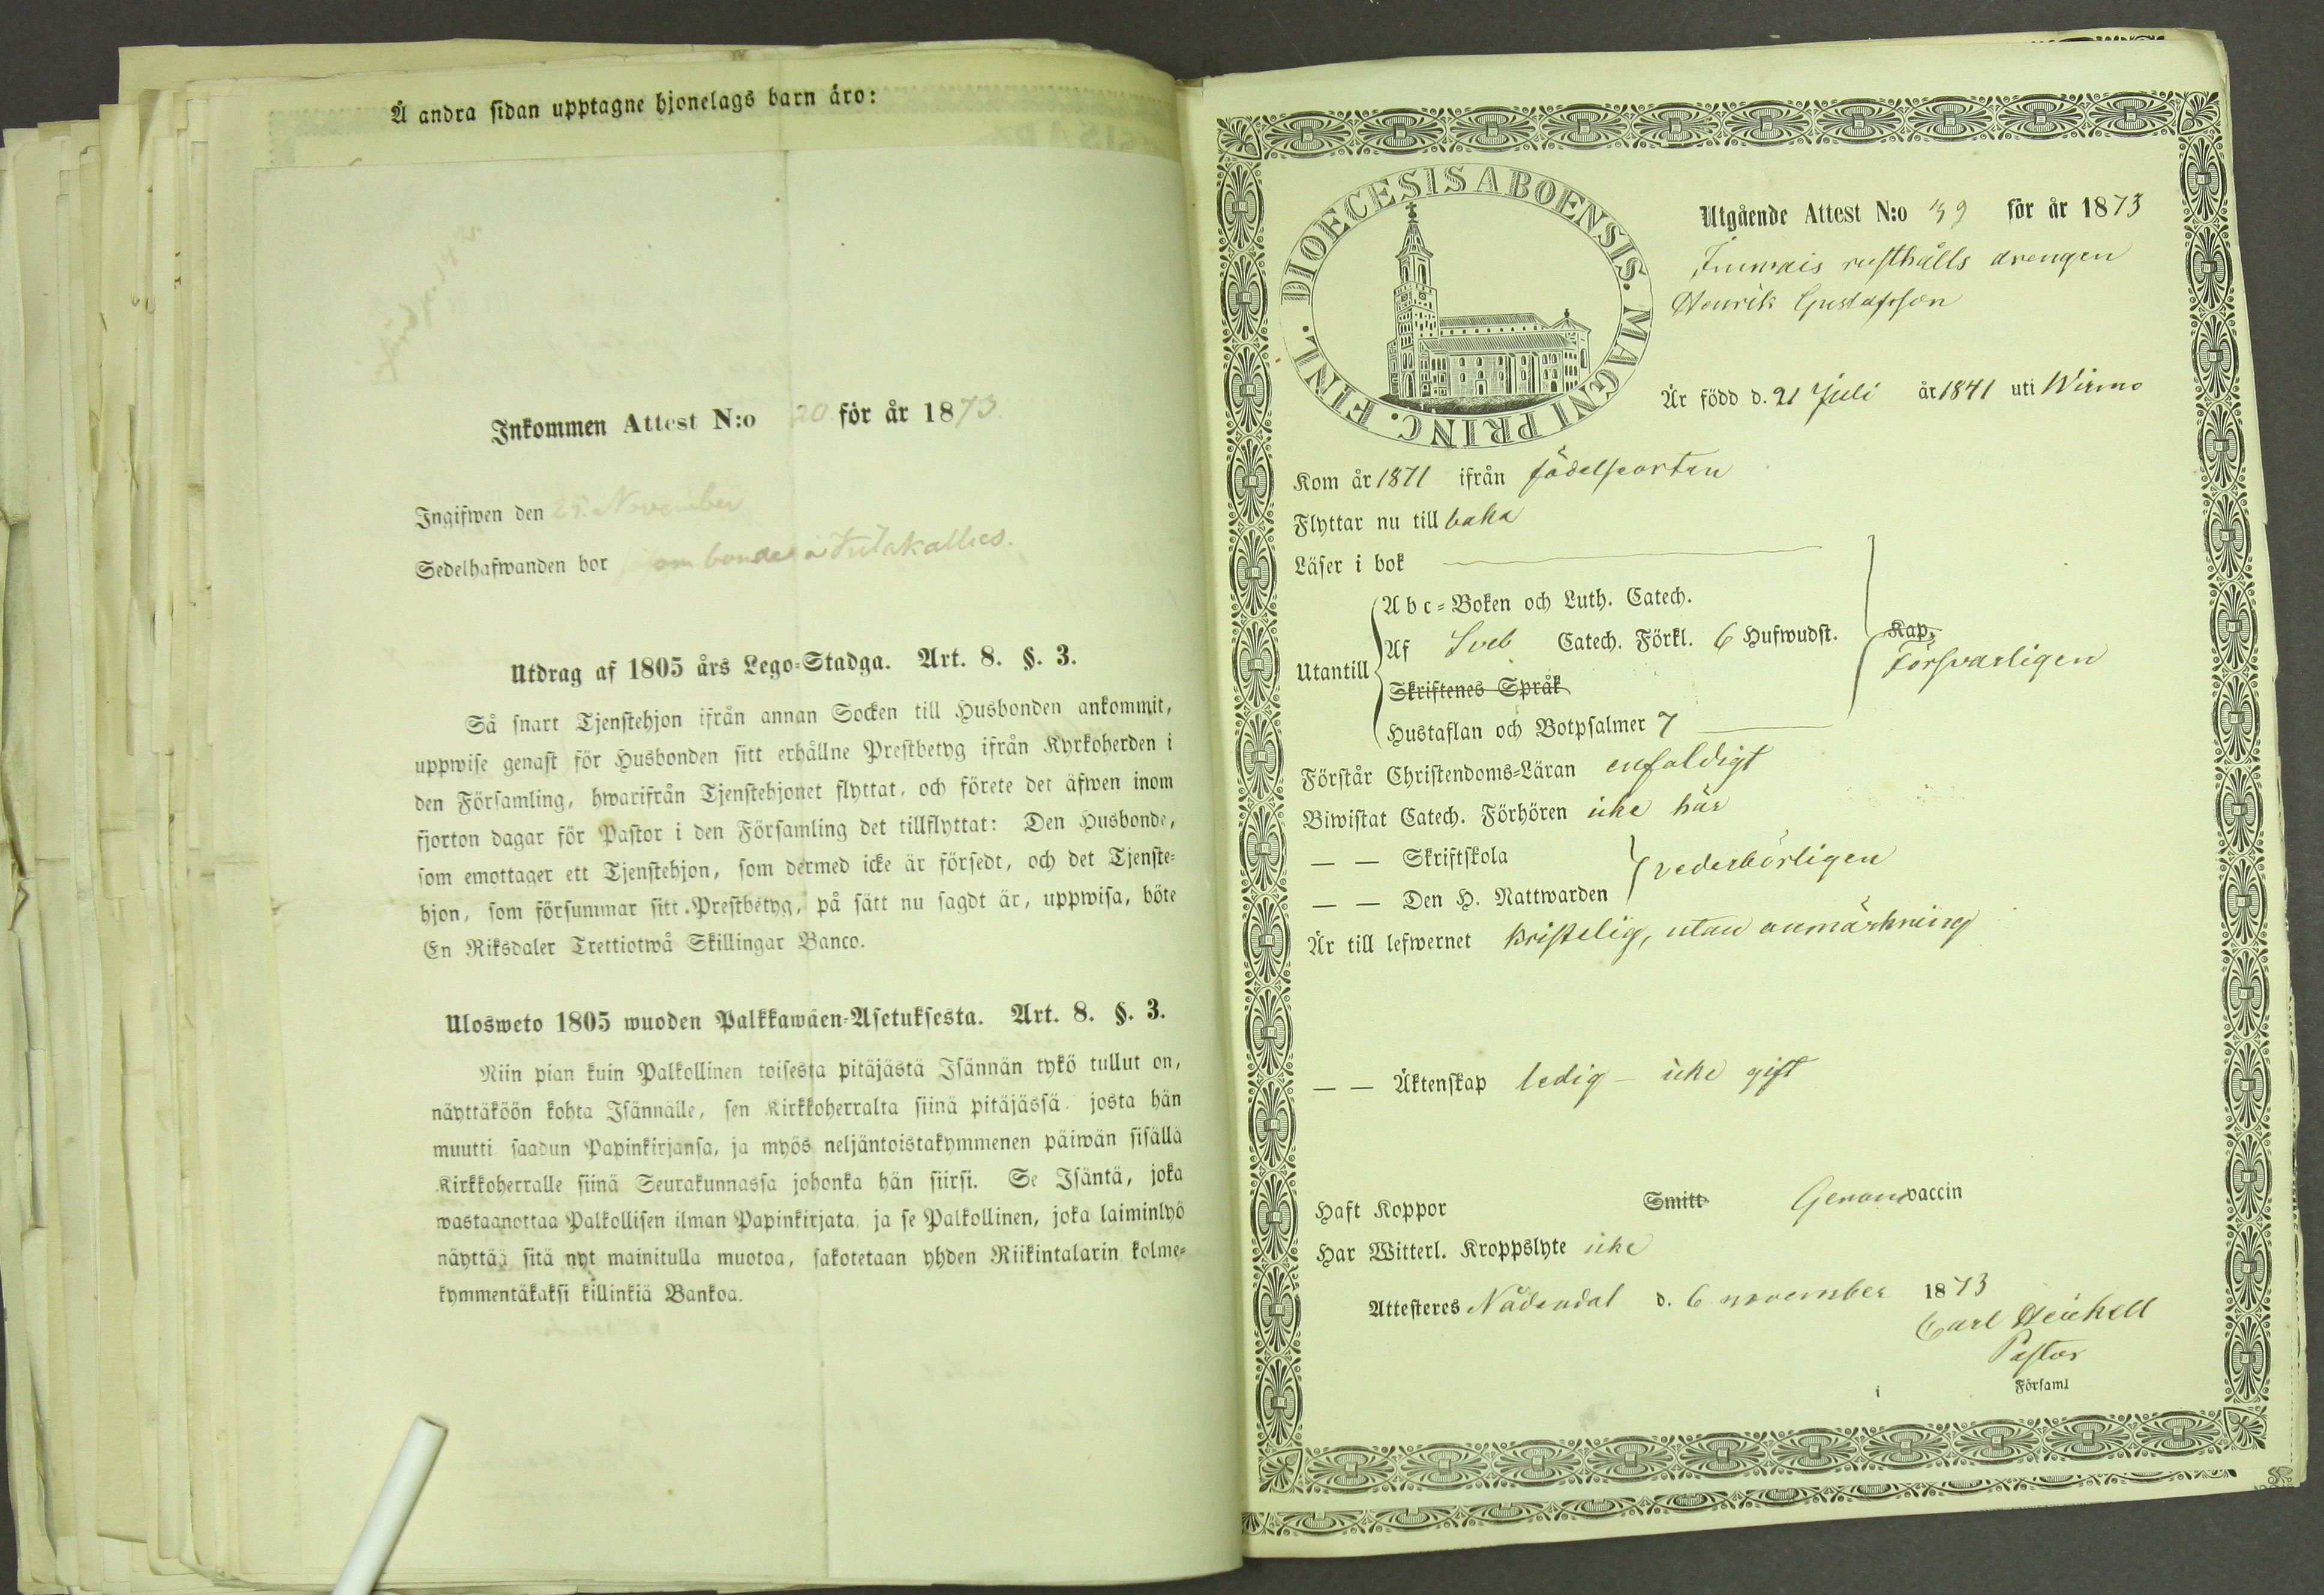 Å andra sidan upptagne hjonelags barn äro:
Inkommen Attest N:o 20 för år 1873.
Ingifwen den 25. November
Sedelhafwanden bor som bonde å
Utdrag af 1805 års Lego-Stadga. Art. 8. §. 3.
Så snart Tjenstehjon ifrån annan Socken till Husbonden ankommit,
uppwise genast för Husbonden sitt erhållne Prestbetyg ifrån Kyrkoherden i
den Församling, hwarifrån Tjenstehjonet flyttat, och förete det äfwen inom
fjorton dagar för Pastor i den Församling det tillflyttat: Den Husbonde,
som emottager ett Tjenstehjon, som dermed icke är försedt, och det Tjenste-
hjon, som försummar sitt Prestbetyg, på sätt nu sagdt är, uppwisa, böte
En Riksdaler Trettiotwå Skillingar Banco.
Ulosweto 1805 wuoden Palkkawäen-Asetuksesta. Art. 8. §. 3.
Niin pian kuin Palkollinen toisesta pitäjästä Isännän tykö tullut on,
näyttäköön kohta Isännälle, sen Kirkkoherralta siinä pitäjässä josta hän
muutti saadun Papinkirjansa, ja myös neljäntoistakymmenen päiwän sisällä
Kirkkoherralle siinä Seurakunnassa johonka hän siirsi. Se Isäntä, joka
wastaanottaa Palkollisen ilman Papinkirjata, ja se Palkollinen, joka laiminlyö
näyttää sitä nyt mainitulla muotoa, sakotetaan yhden Riikintalarin kolme-
kymmentäkaksi killinkiä Bankoa.
DIOECESIS ABOENSIS. MAGNI PRINC. FINL.
Utgående Attest N:o 39 för år 1873
rusthålls drengen
Henrik Gustafsson
Är född d. 21 Juli år 1841 uti Wirmo
Kom år 1871 ifrån födelseorten
Flyttar nu till baka
Läser i bok
Utantill
Abc-Boken och Luth. Catech.
Af Sveb Catech. Förkl. 6 Hufwudst. Kap.
Försvarligen
Skriftenes Språk
Hustaflan och Botpsalmer 7
Förstår Christendoms-Läran enfaldigt
Biwistat Catech. Förhören icke här
— — Skriftskola
vederbörligen
— — Den H. Nattwarden
Är till lefwernet kristelig, utan anmärkning
— — Äktenskap ledig – icke gift
Haft Koppor Smitt Genom vaccin
Har Witterl. Kroppslyte icke
Attesteres Nådendal d. 6 november 1873
Carl Heickell
Pastor
i Församl